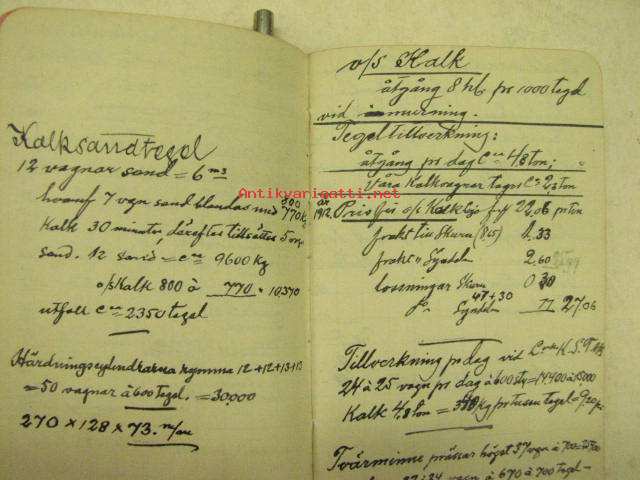 Kalksandtegel
12 vagnar sand = 6 m3
hvaraf 7 vgn sand blandas med 800 770 kg
Kalk 30 minuter, därefter tillsättes 5 vgn
sand. 12 = ca 9600 Kg
o/s Kalk 800 à 770 = 10,370
utfall ca 2350 tegel
Härdningscylindrarna rymma 12+12+13+13
= 50 vagnar à 600 tegel. = 30,000
270 × 128 × 73. m/m
o/s Kalk
åtgång 8 hl. pr 1000 tegel
vid murning.
Tegeltillverkning:
åtgång pr dag Ca 4,8 ton;
Våra Kalkvagnar taga Ca 23 ton
år 1912. Priset o/s Kalk 22.06 pr ton
frakt till Skuru (8,65) 1.33
frakt " 2.60
lossningar Skuru 0 30
47+30 27.06
Tillverkning pr dag vid K.S.T.
24 à 25 vagn pr dag à 600 st = 14,400 à 15000
Kalk 4.8 ton = kg pr tusen tegel =
Tvärminne prässar högst 37 vgn à 700 =
à 670 à 700 tegel -
Antikvariaatti.net